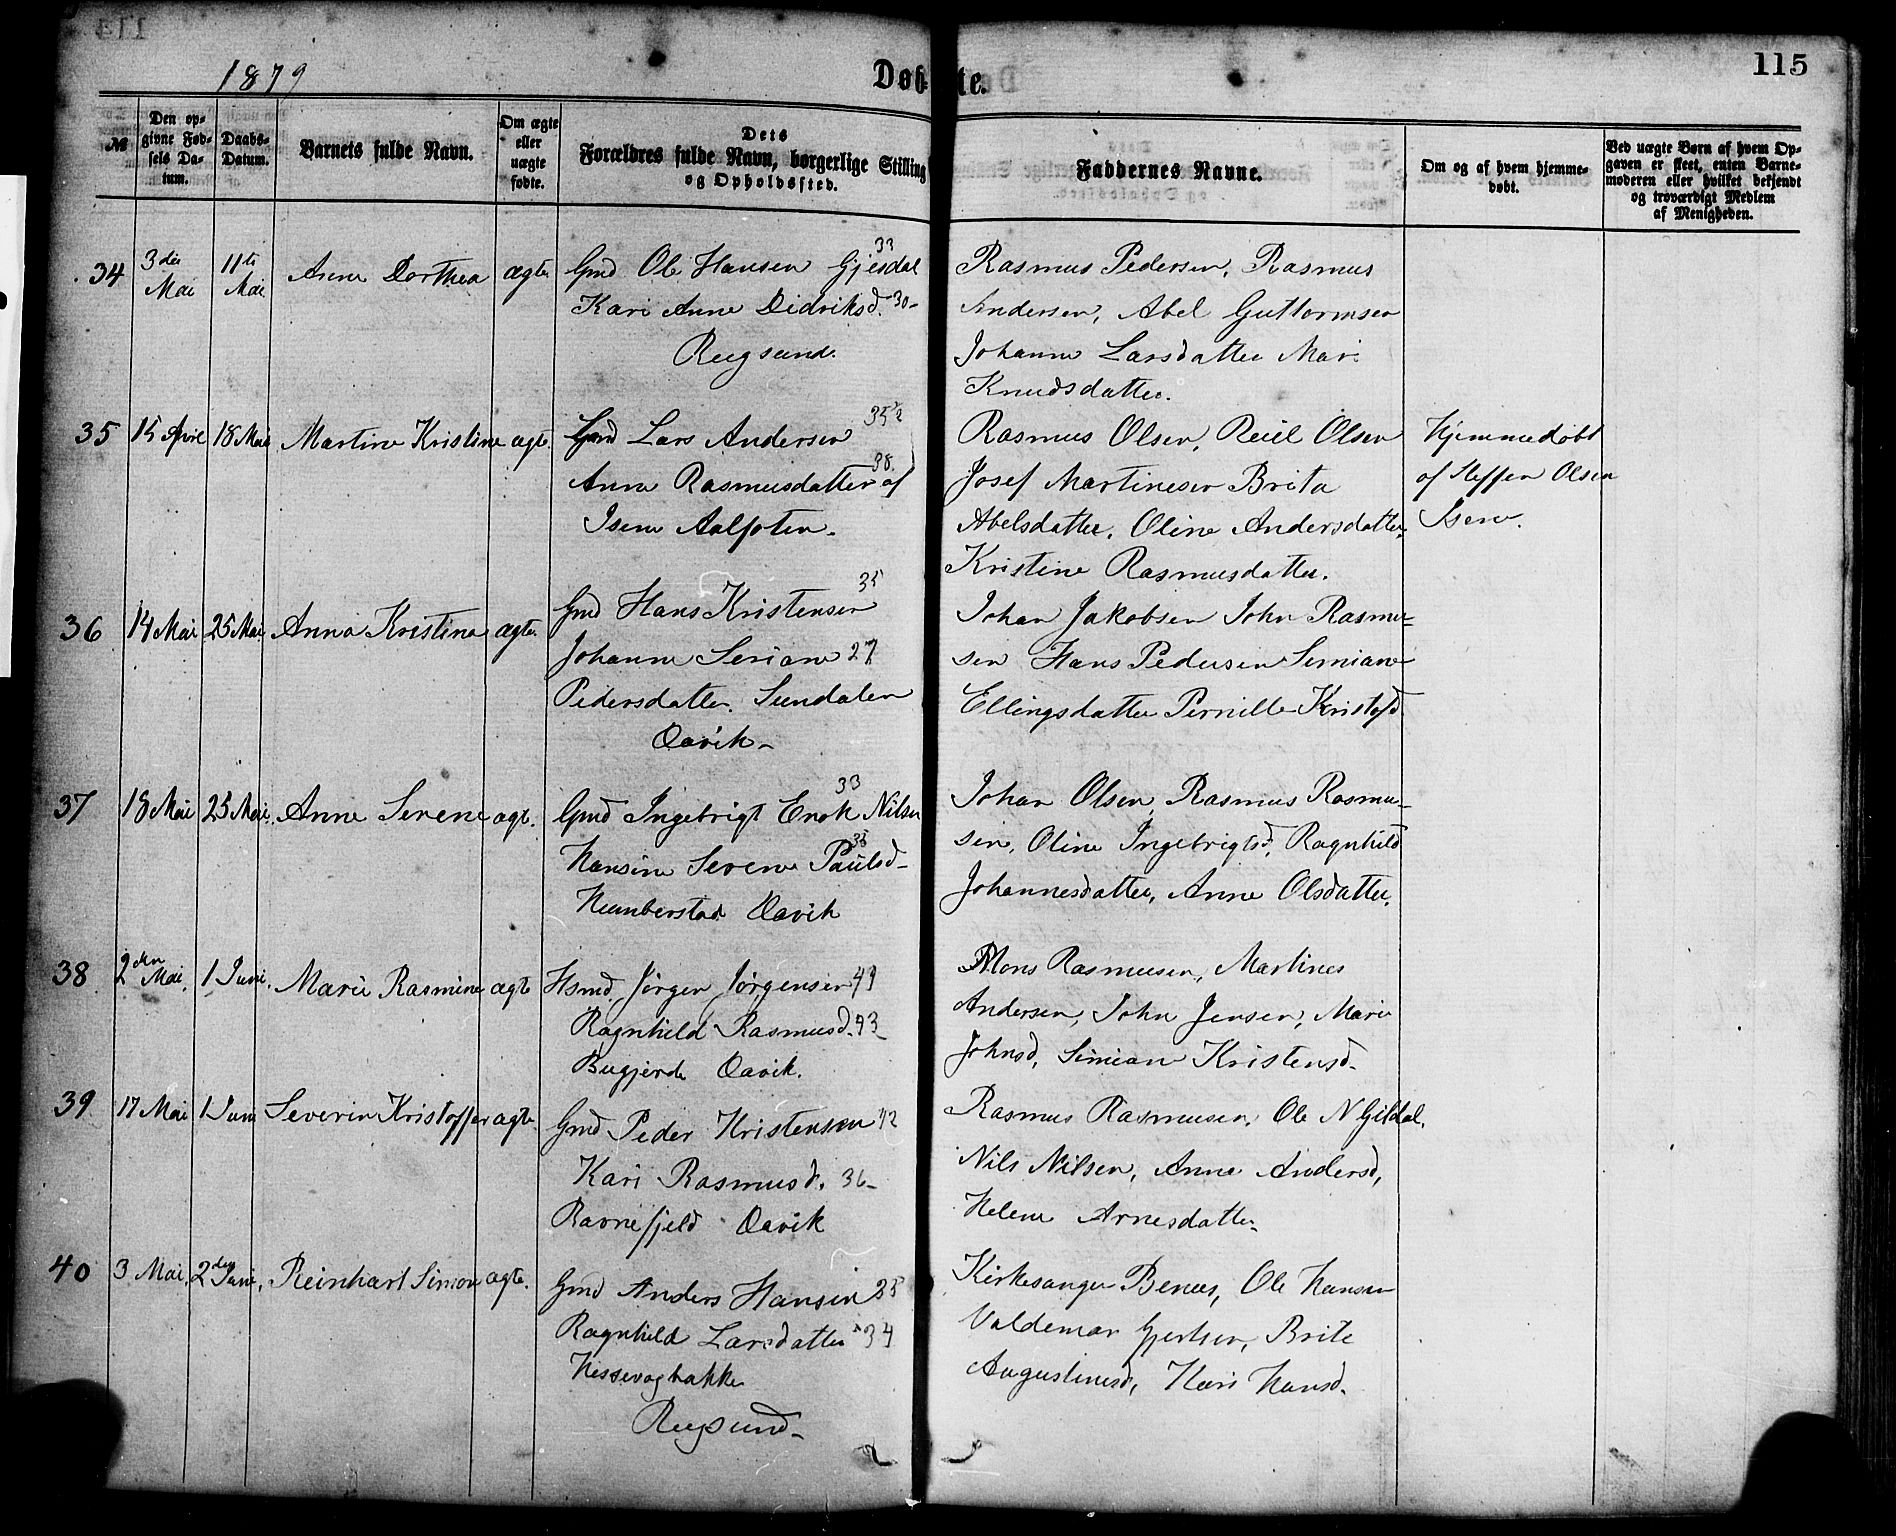 1879
Døbte.
115
№
Den op-
givne Fød-
sels Da-
tum.
Daabs-
Datum.
Barnets fulde Navn.
Om ægte
eller
uægte
fødte.
Dets
Forældres fulde Navn, borgerlige Stilling
og Opholdssted.
Faddernes Navne.
Om og af hvem hjemme-
døbt.
Ved uægte Børn af hvem Op-
gaven er skeet, enten Barne-
moderen eller hvilket bekjendt
og troværdigt Medlem
af Menigheden.
34
3die
Mai
11te
Mai
Anne Dorthea
ægte
Gmd Ole Hansen Gjesdal 33
Kari Anne Didriksd. 30-
Rugsund.
Rasmus Pedersen, Rasmus
Andersen, Abel Guttormsen
Johanne Larsdatter Mari
Knudsdatter.
35
15 April
18 Mai
Martine Kristine
ægte.
Gmd Lars Andersen 35½
Anne Rasmusdatter 38. af
Isene Aalfoten.
Rasmus Olsen, Reiel Olsen
Josef Martinesen Brita
Abelsdatter, Oline Andersdatter,
Kristine Rasmusdatter.
Hjemmedøbt
af Steffen Olsen
Isene.
36
14 Mai
25 Mai
Anna Kristina
ægte.
Gmd Hans Kristensen 35
Johanne Seriane 27
Pedersdatter. Sundalen
Davik-
Johan Jakobsen John Rasmu-
sen Hans Pedersen Simiane
Ellingsdatter Pernille Kristofd
37
18 Mai
25 Mai.
Anne Serene
ægt.
Gmd Ingebrigt Enok Nilsen 33
Hansine Serene Paulsd- 35
Humberstad Davik
Johan Olsen, Rasmus Rasmu-
sen, Oline Ingebrigtsd, Ragnhild
Johannesdatter, Anne Olsdatter.
38
2den
Mai.
1 Juni.
Marie Rasmine
ægte
Hsmd. Jørgen Jørgensen 41
Ragnhild Rasmusd. 43-
Bugjerde Davik.
Mons Rasmusen, Martines
Andersen, John Jensen, Marie
Johnsd, Simian Kristensd.
39
17 Mai
1 Juni
Severin Kristoffer
ægte.
Gmd Peder Kristensen 42
Kari Rasmusd. 36-
Ravnefjeld Davik
Rasmus Rasmusen, Ole N Gildal.
Nils Nilsen, Anne Andersd,
Helene Arnesdatter
40
3 Mai.
2den Juni.
Reinhart Simon
ægte.
Gmd Anders Hansen 35
Ragnhild Larsdatter 34
Hessevogbakke
Rugsund-
Kirkesanger Benæs, Ole Hansen
Valdemar Gjertsen, Brite
Augustinusd, Kari Hansd.